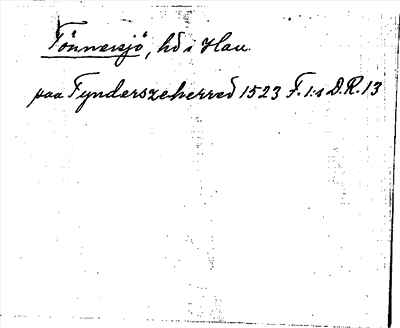 Tönnersjö, hd i Hall.
paa Fynderszeherred 1523 F. 1:s D.R. 13